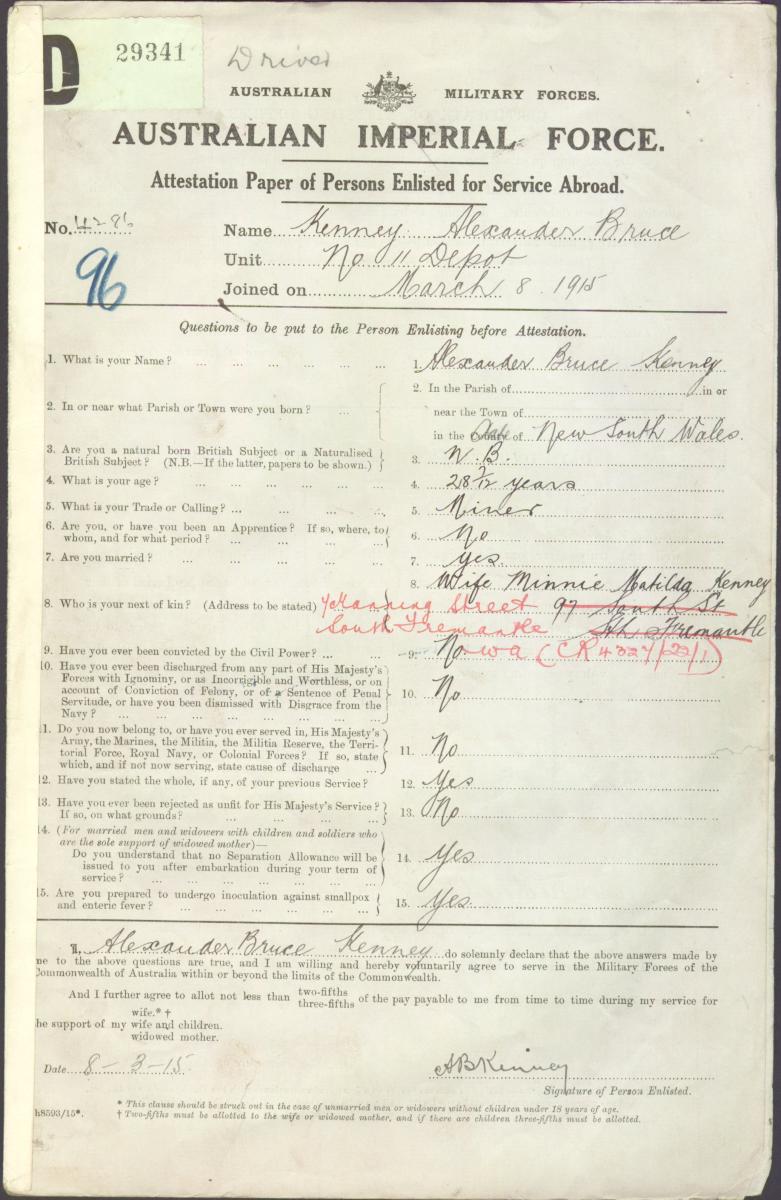 D 29341 Driver
AUSTRALIAN MILITARY FORCES.
AUSTRALIAN IMPERIAL FORCE.
Attestation Paper of Persons Enlisted for Service Abroad.
No. 4286 Name Kenney Alexander Bruce
96 Unit No 11 Depot
Joined on March 8. 1915
Questions to be put to the Person Enlisting before Attestation.
1. What is your Name? ... 1. Alexander Bruce Kenney
2. In or near what Parish or Town were you born? ... 2. In the Parish of ... in or
near the Town of
in the County of New South Wales.
3. Are you a natural born British Subject or a Naturalised British Subject? (N.B.—If the latter, papers to be shown.) 3. N.B.
4. What is your age? ... 4. 28 7/12 years
5. What is your Trade or Calling? ... 5. Miner
6. Are you, or have you been an Apprentice? If so, where, to whom, and for what period? ... 6. No
7. Are you married? ... 7. yes
8. Who is your next of kin? (Address to be stated) 8. Wife Minnie Matilda Kenney
Manning Street 97 South St
South Fremantle Sth Fremantle
W A (CR 4327/22/1)
9. Have you ever been convicted by the Civil Power? ... 9. No
10. Have you ever been discharged from any part of His Majesty's
Forces with Ignominy, or as Incorrigible and Worthless, or on
account of Conviction of Felony, or of a Sentence of Penal
Servitude, or have you been dismissed with Disgrace from the
Navy? ... 10. No
11. Do you now belong to, or have you ever served in, His Majesty's
Army, the Marines, the Militia, the Militia Reserve, the Terri-
torial Force, Royal Navy, or Colonial Forces? If so, state
which, and if not now serving, state cause of discharge ... 11. No
12. Have you stated the whole, if any, of your previous Service? 12. Yes
13. Have you ever been rejected as unfit for His Majesty's Service?
If so, on what grounds? ... 13. No
14. (For married men and widowers with children and soldiers who
are the sole support of widowed mother)—
Do you understand that no Separation Allowance will be
issued to you after embarkation during your term of
service? ... 14. Yes
15. Are you prepared to undergo inoculation against smallpox
and enteric fever? ... 15. Yes
I, Alexander Bruce Kenney do solemnly declare that the above answers made by
me to the above questions are true, and I am willing and hereby voluntarily agree to serve in the Military Forces of the
Commonwealth of Australia within or beyond the limits of the Commonwealth.
And I further agree to allot not less than two-fifths three-fifths of the pay payable to me from time to time during my service for
wife.* †
the support of my wife and children.
widowed mother.
Date 8-3-15 ABKenney
Signature of Person Enlisted.
* This clause should be struck out in the case of unmarried men or widowers without children under 18 years of age.
h8593/15*. † Two-fifths must be allotted to the wife or widowed mother, and if there are children three-fifths must be allotted.